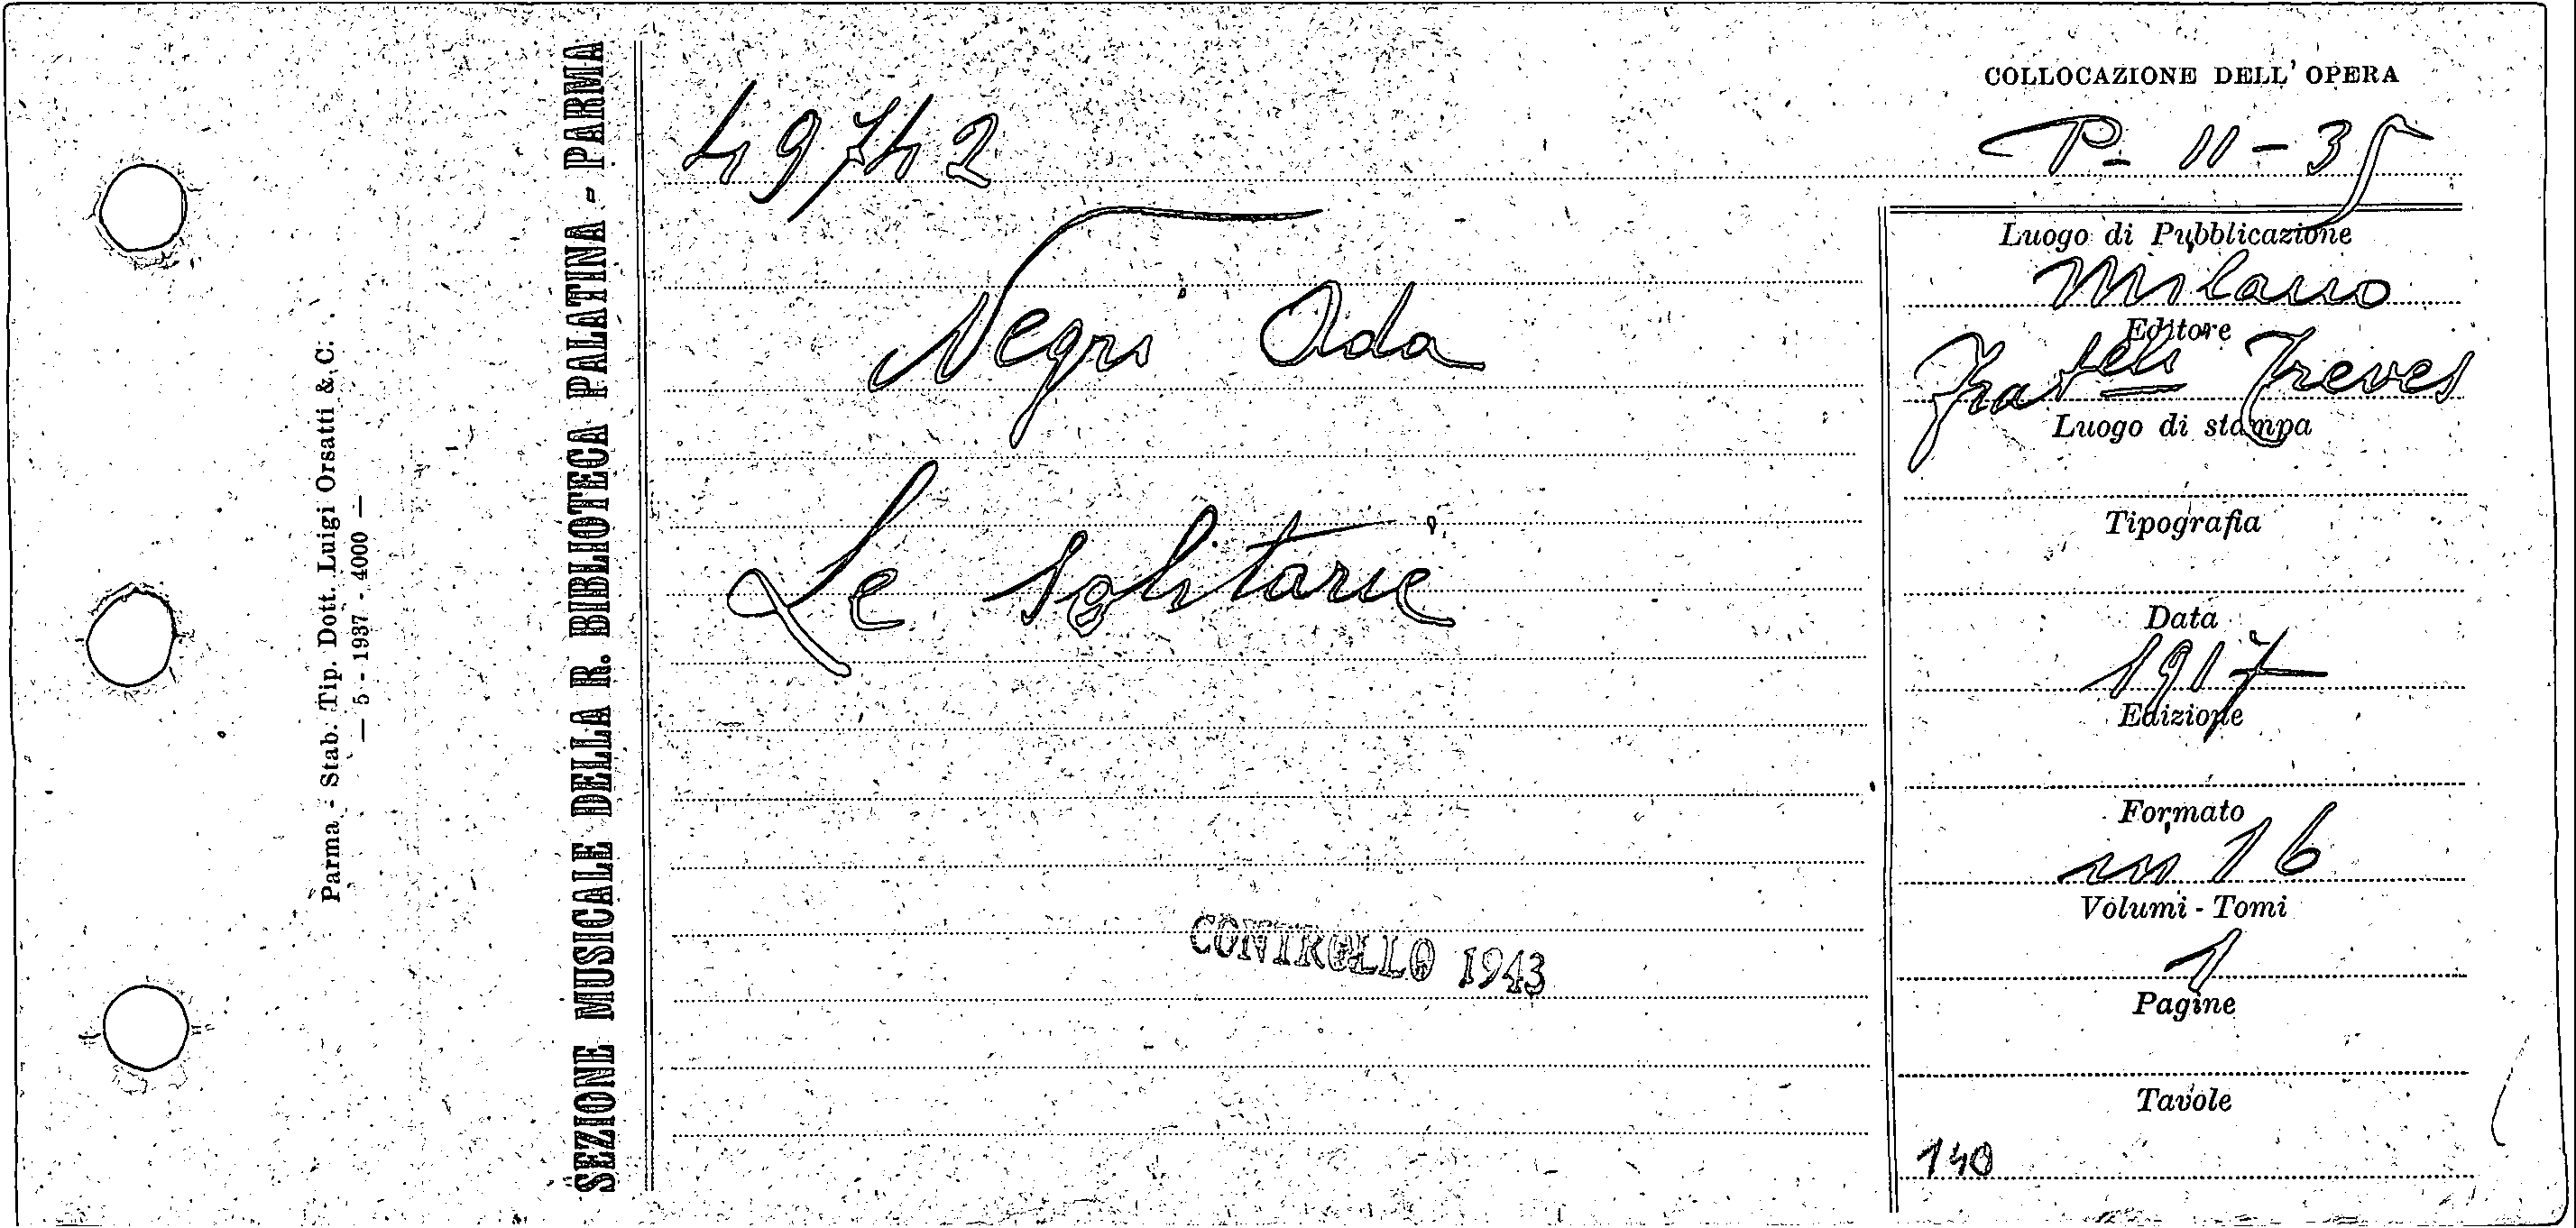 Parma - Stab. Tip. Dott. Luigi Orsatti & C.
— 5 - 1937 - 4000 —
SEZIONE MUSICALE DELLA R. BIBLIOTECA PALATINA - PARMA
49742
Negri Ada
Le solitarie
CONTROLLO 1943
COLLOCAZIONE DELL'OPERA
P- II - 35
Luogo di Pubblicazione
Milano
Editore
Fratelli Treves
Luogo di stampa
Tipografia
Data
1917
Edizione
Formato
in 16
Volumi - Tomi
1
Pagine
Tavole
140